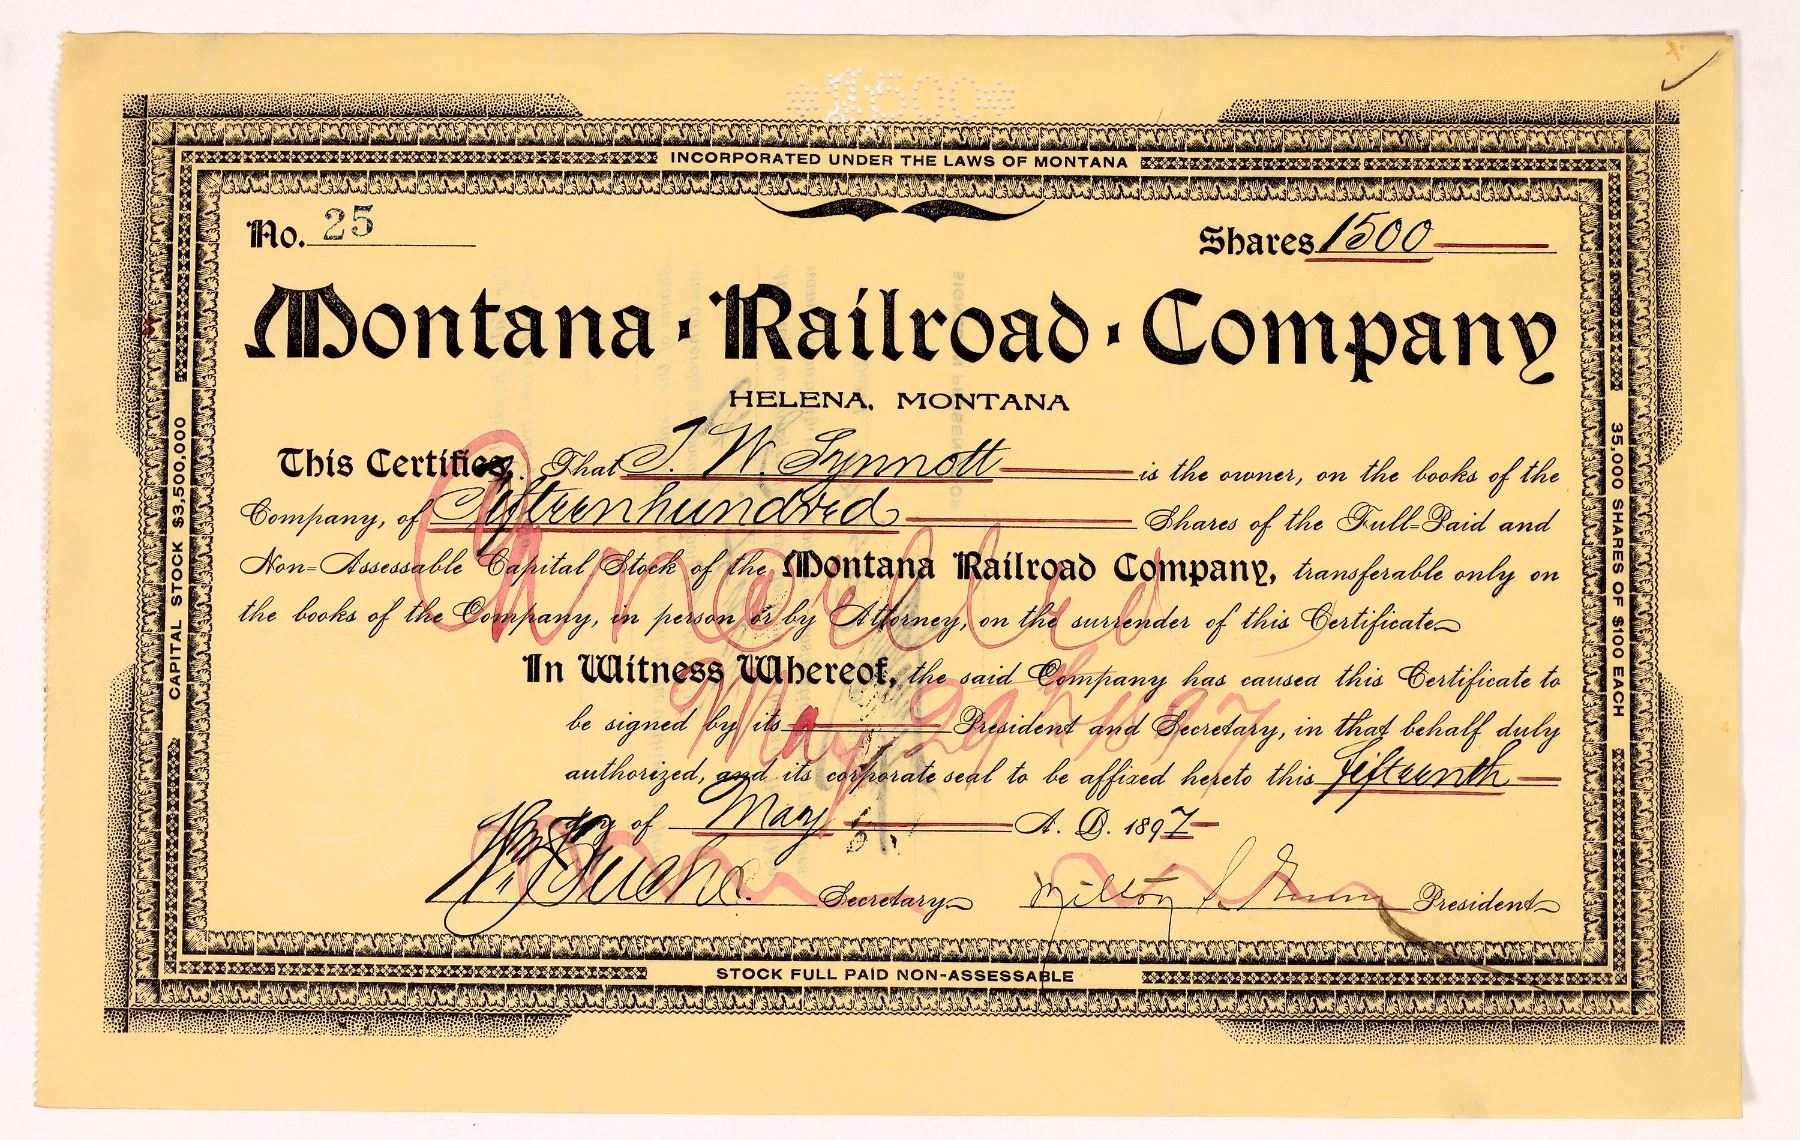 *1500*
INCORPORATED UNDER THE LAWS OF MONTANA
No. 25
Shares 1500
Montana · Railroad · Company
HELENA, MONTANA
CAPITAL STOCK $3,500,000
35,000 SHARES OF $100 EACH
This Certifies, That T. W. Synnott is the owner, on the books of the
Company, of Fifteen hundred Shares of the Full=Paid and
Non=Assessable Capital Stock of the Montana Railroad Company, transferable only on
the books of the Company, in person or by Attorney, on the surrender of this Certificate
In Witness Whereof, the said Company has caused this Certificate to
be signed by its President and Secretary, in that behalf duly
authorized, and its corporate seal to be affixed hereto this fifteenth
day of May A. D. 1897
Cancelled
May 29th 1897
Secretary
Milton S. Gunn President
STOCK FULL PAID NON-ASSESSABLE